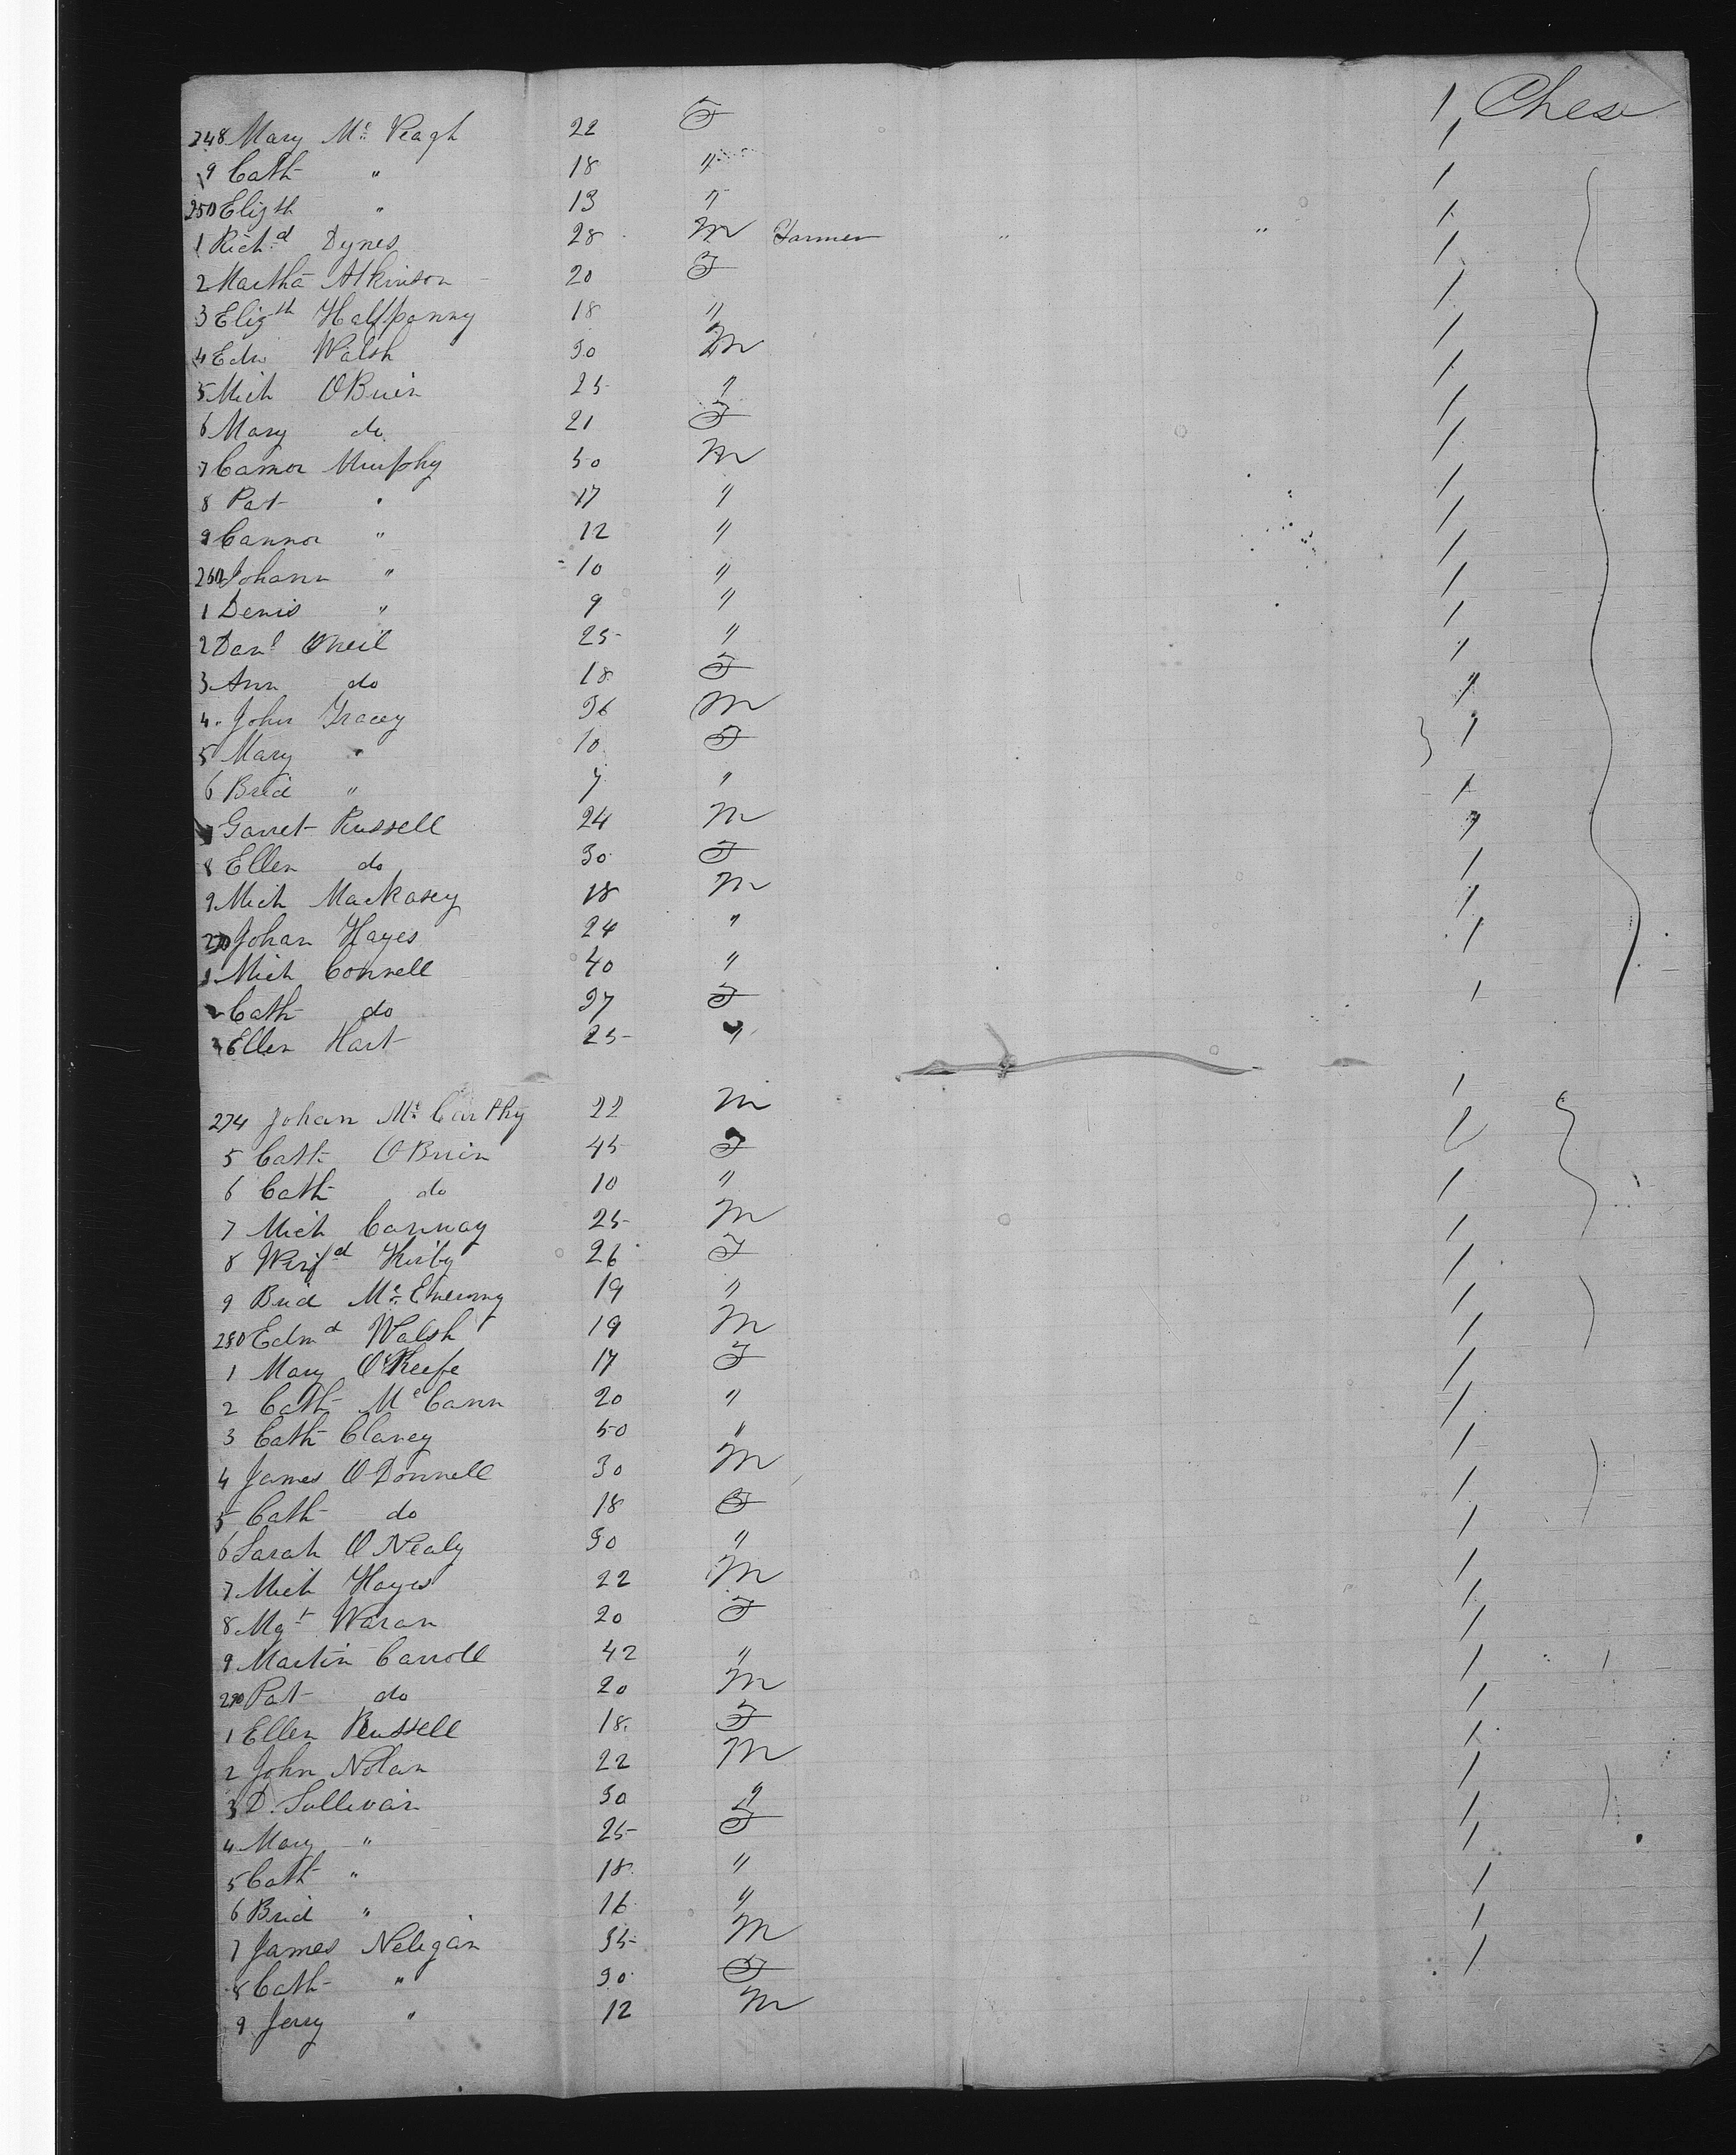 1 Chese
248 Mary Mc Veagh 22 F 1
9 Cath " 18 " 1
250 Elizth " 13 " 1
1 Richd Dynes 28 M Farmer " " 1
2 Martha Atkinson 20 F 1
3 Elizth Halfpanny 18 " 1
4 Edw Walsh 30 M 1
5 Mich OBrien 25 " 1
6 Mary do 21 F 1
7 Connor Murphy 50 M 1
8 Pat " 17 " 1
9 Connor " 12 " 1
260 Johann " 10 " 1
1 Denis " 9 " 1
2 Danl ONeil 25 " 1
3 Ann do 18 F 1
4 John Gracey 36 M 1
5 Mary " 10 F 1
6 Brid " 7 " 1
7 Garret Russell 24 M 1
8 Ellen do 30 F 1
9 Mich MacKasey 18 M 1
270 Johan Hayes 24 " 1
1 Mich Connell 40 " 1
2 Cath do 37 F 1
3 Ellen Hart 25 "
274 Johan Mc Carthy 22 M 1
5 Cath OBrien 45 F 1
6 Cath do 10 " 1
7 Mich Conway 25 M 1
8 Winfd Kirby 26 F 1
9 Brid Mc Enerny 19 " 1
280 Edmd Walsh 19 M 1
1 Mary O'Keefe 17 F 1
2 Cath McCann 20 " 1
3 Cath Clancy 50 " 1
4 James ODonnell 30 M 1
5 Cath do 18 F 1
6 Sarah O Nealy 30 " 1
7 Mich Hayes 22 M 1
8 Mgt Waran 20 F 1
9 Martin Carroll 42 " 1
290 Pat do 20 M 1
1 Ellen Russell 18 F 1
2 John Nolan 22 M 1
3 D. Sullivan 30 " 1
4 Mary " 25 F 1
5 Cath " 18 " 1
6 Brid " 16 " 1
7 James Neligan 35 M 1
8 Cath " 30 F 1
9 Jerry " 12 M